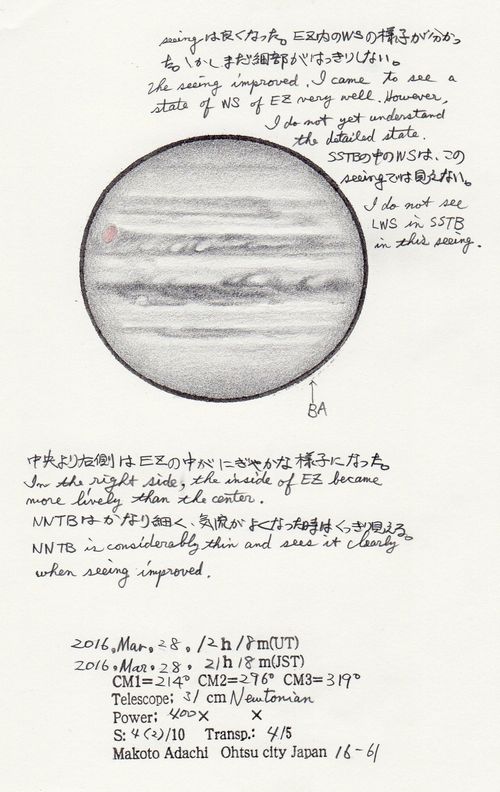 seeingは良くなった。EZ内のWSの様子が分かっ
た。しかしまだ細部がはっきりしない。
The seeing improved. I came to see a
state of WS of EZ very well. However,
I do not yet understand
the detailed state.
SSTBの中のWSは、この
seeingでは見えない。
I do not see
LWS in SSTB
in this seeing.
BA
中央より右側はEZの中がにぎやかな様子になった。
In the right side, the inside of EZ became
more lively than the center.
NNTBはかなり細く、気流がよくなった時はくっきり見える。
NNTB is considerably thin and sees it clearly
when seeing improved.
2016. Mar. 28. 12h 18m(UT)
2016. Mar. 28. 21h 18m(JST)
CM1=214° CM2=296° CM3=319°
Telescope; 31 cm Newtonian
Power; 400× ×
S: 4(2)/10 Transp.: 4/5
Makoto Adachi Ohtsu city Japan 16-61